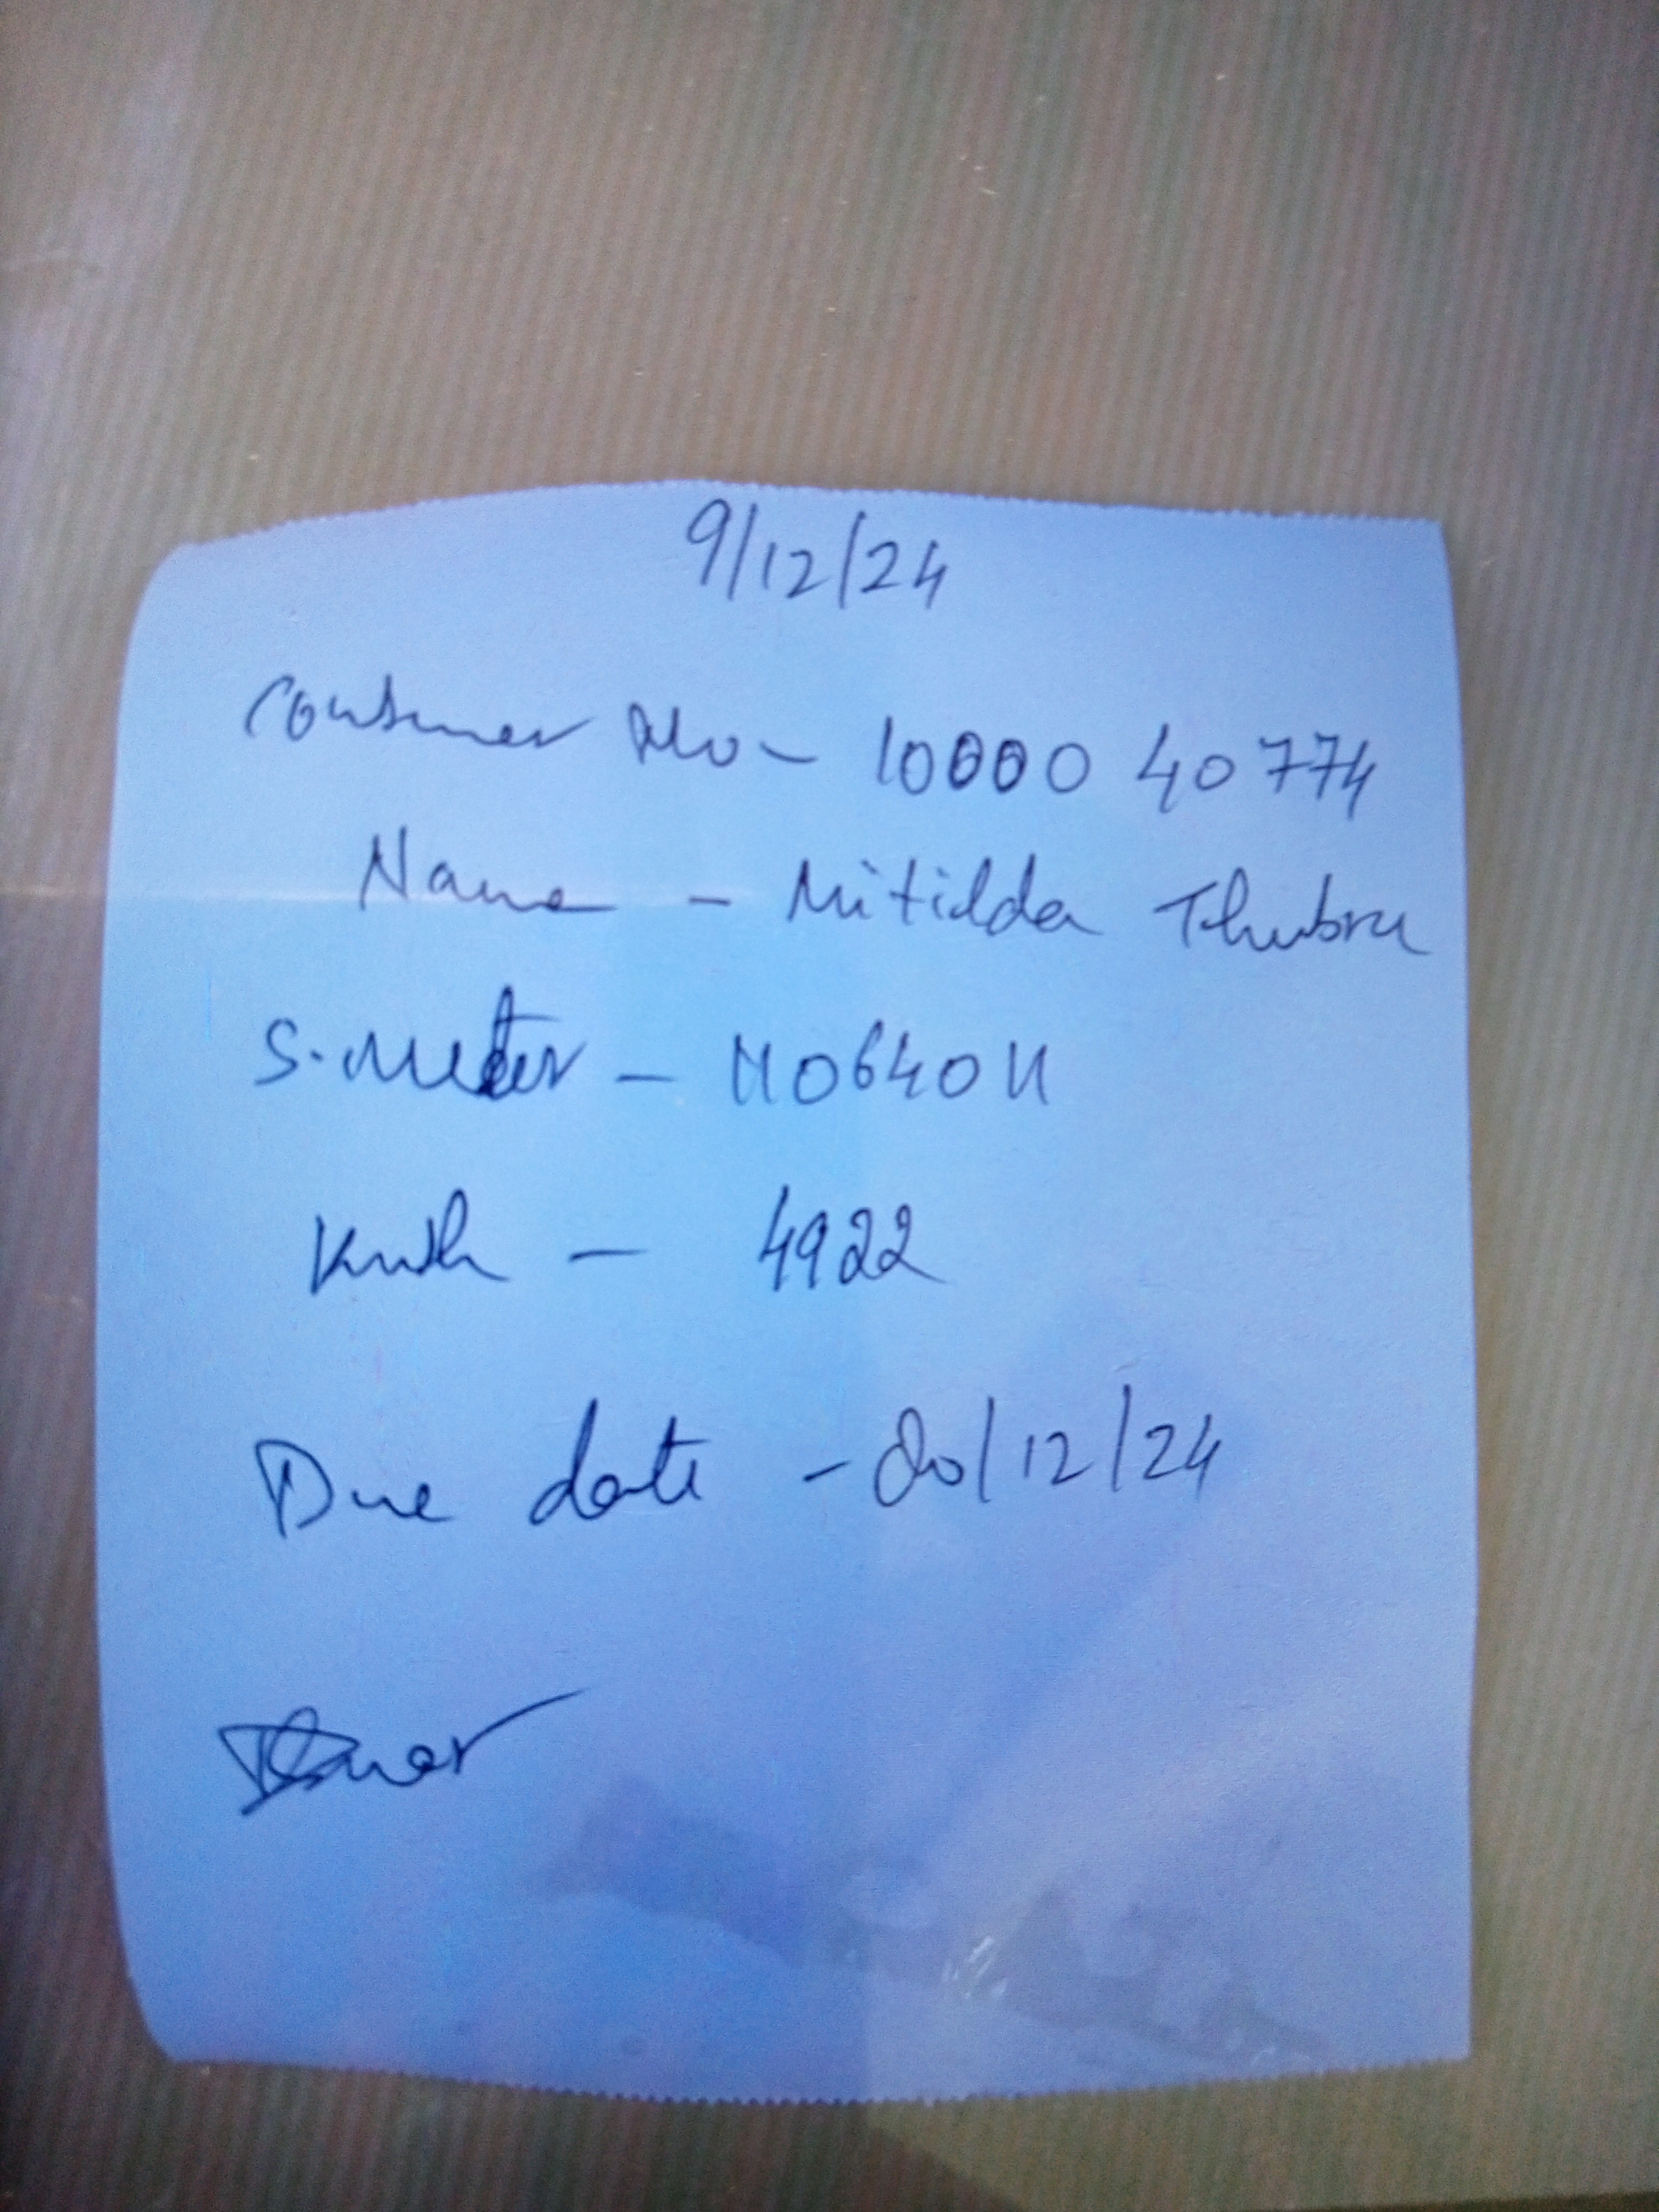 9/12/24
Consumer No - 10000 40774
Name - Mitilda Thubru
S. Meter - 11064011
Kwh - 4922
Due date - 20/12/24